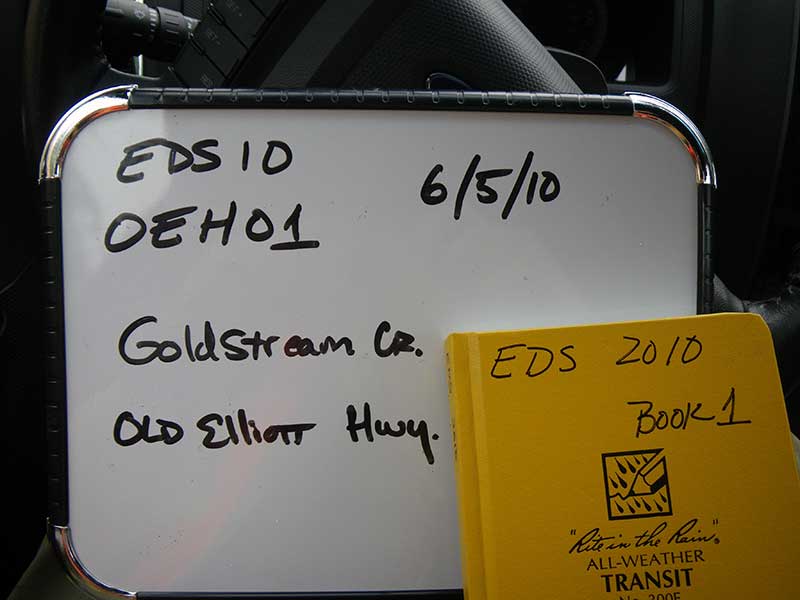 EDS10
6/5/10
OEH01
Goldstream Cr.
OLD Elliott Hwy.
EDS 2010
BOOK 1
"Rite in the Rain"®
ALL-WEATHER
TRANSIT
No. 300F